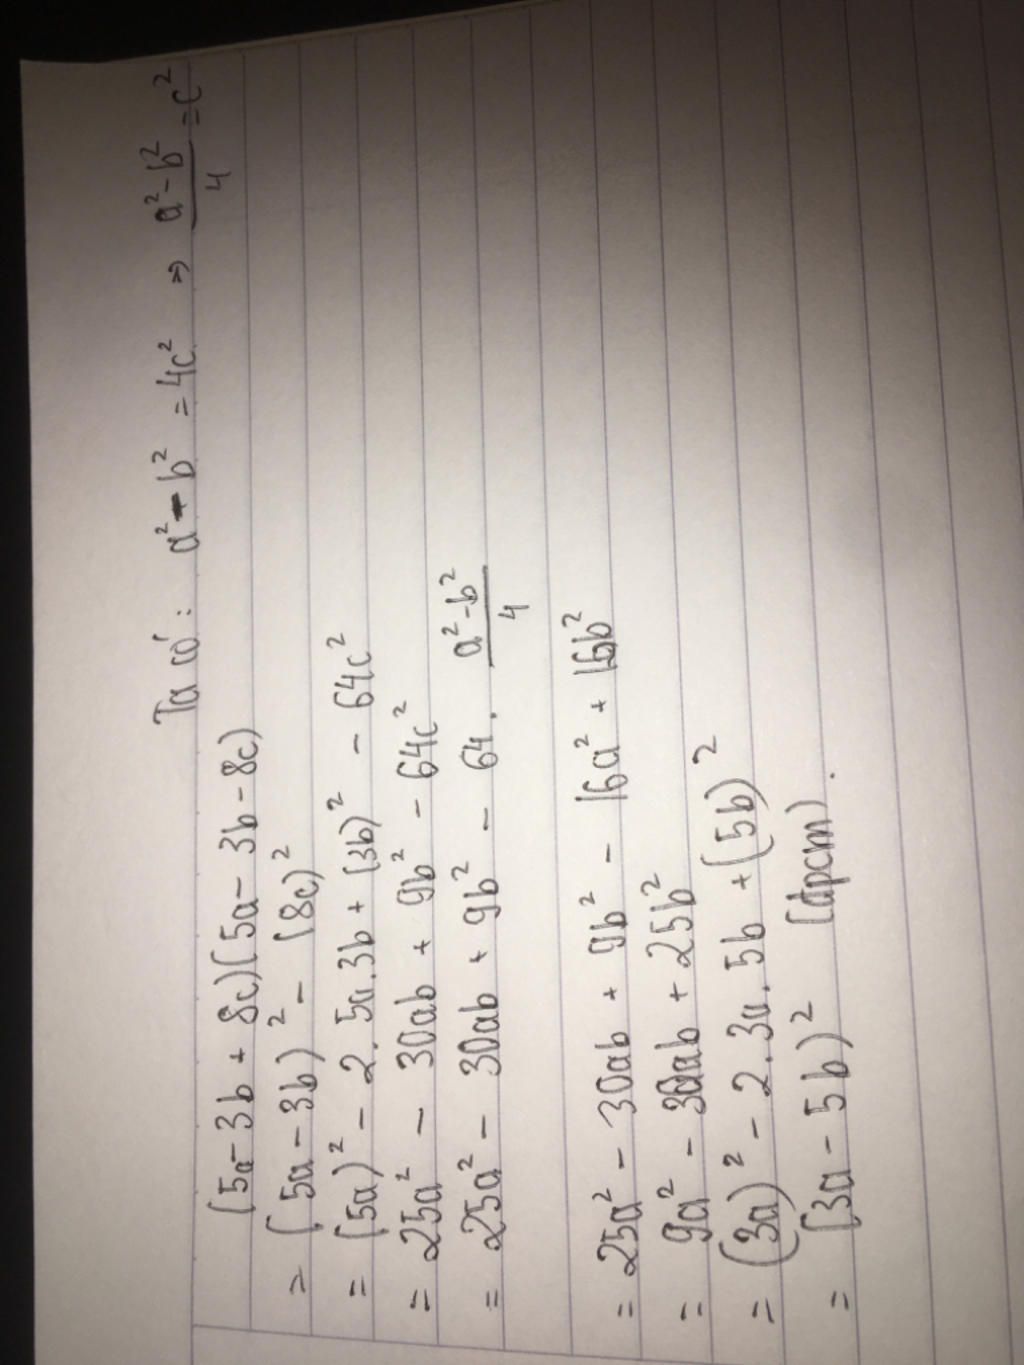 Ta có: a² - b² = 4c² => (a² - b²)/4 = c²
(5a - 3b + 8c)(5a - 3b - 8c)
= (5a - 3b)² - (8c)²
= (5a)² - 2.5a.3b + (3b)² - 64c²
= 25a² - 30ab + 9b² - 64c²
= 25a² - 30ab + 9b² - 64. (a² - b²)/4
= 25a² - 30ab + 9b² - 16a² + 16b²
= 9a² - 30ab + 25b²
= (3a)² - 2.3a.5b + (5b)²
= (3a - 5b)² (đpcm).